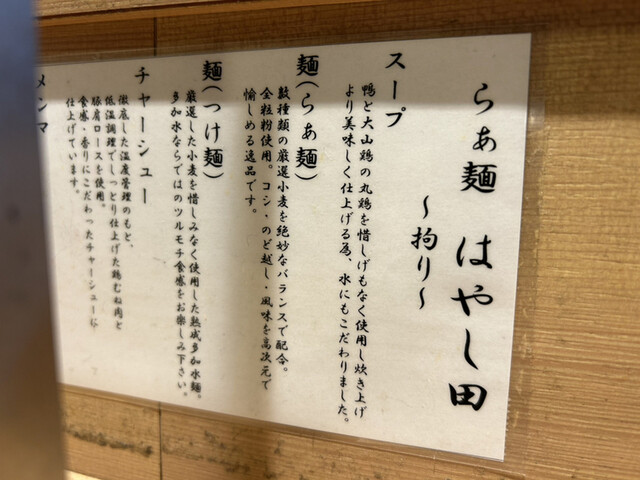 らぁ麺 はやし田
～拘り～
スープ
鴨と大山鶏の丸鶏を惜しげもなく使用し炊き上げ
より美味しく仕上げる為、水にもこだわりました。
麺(らぁ麺)
数種類の厳選小麦を絶妙なバランスで配合。
全粒粉使用。コシ・のど越し・風味を高次元で
愉しめる逸品です。
麺(つけ麺)
厳選した小麦を惜しみなく使用した熟成多加水麺。
多加水ならではのツルモチ食感をお楽しみ下さい。
チャーシュー
徹底した温度管理のもと、
低温調理でしっとり仕上げた鶏むね肉と
豚肩ロースを使用。
食感・香りにこだわったチャーシューに
仕上げています。
メンマ